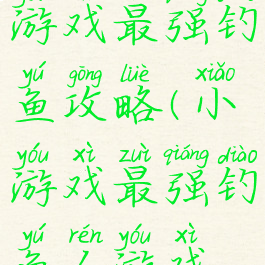 游戏最强钓
yú gōng lüè xiǎo
鱼攻略(小
yóu xì zuì qiáng diào
游戏最强钓
yú rén yóu xì